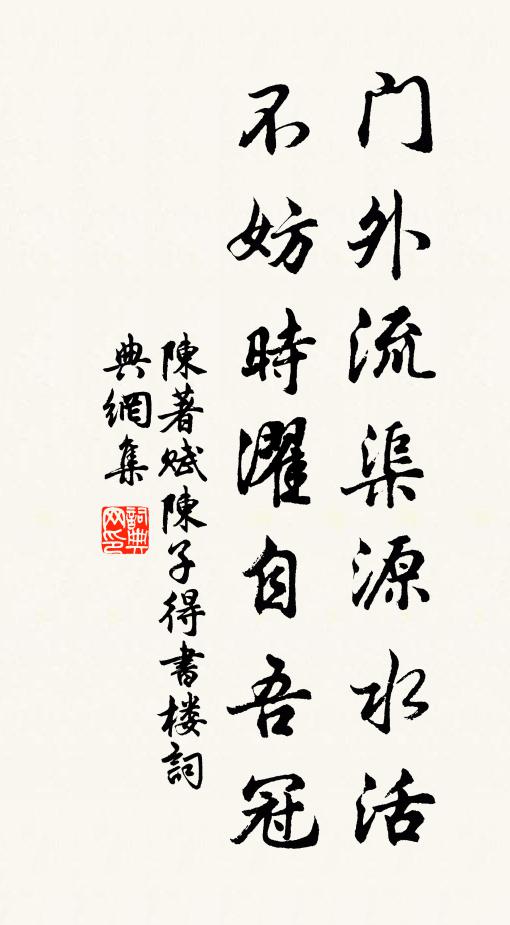 门外流渠源水活
不妨時濯自吾冠
陳著賦陳子得書楼詞
典網集
詞典网印